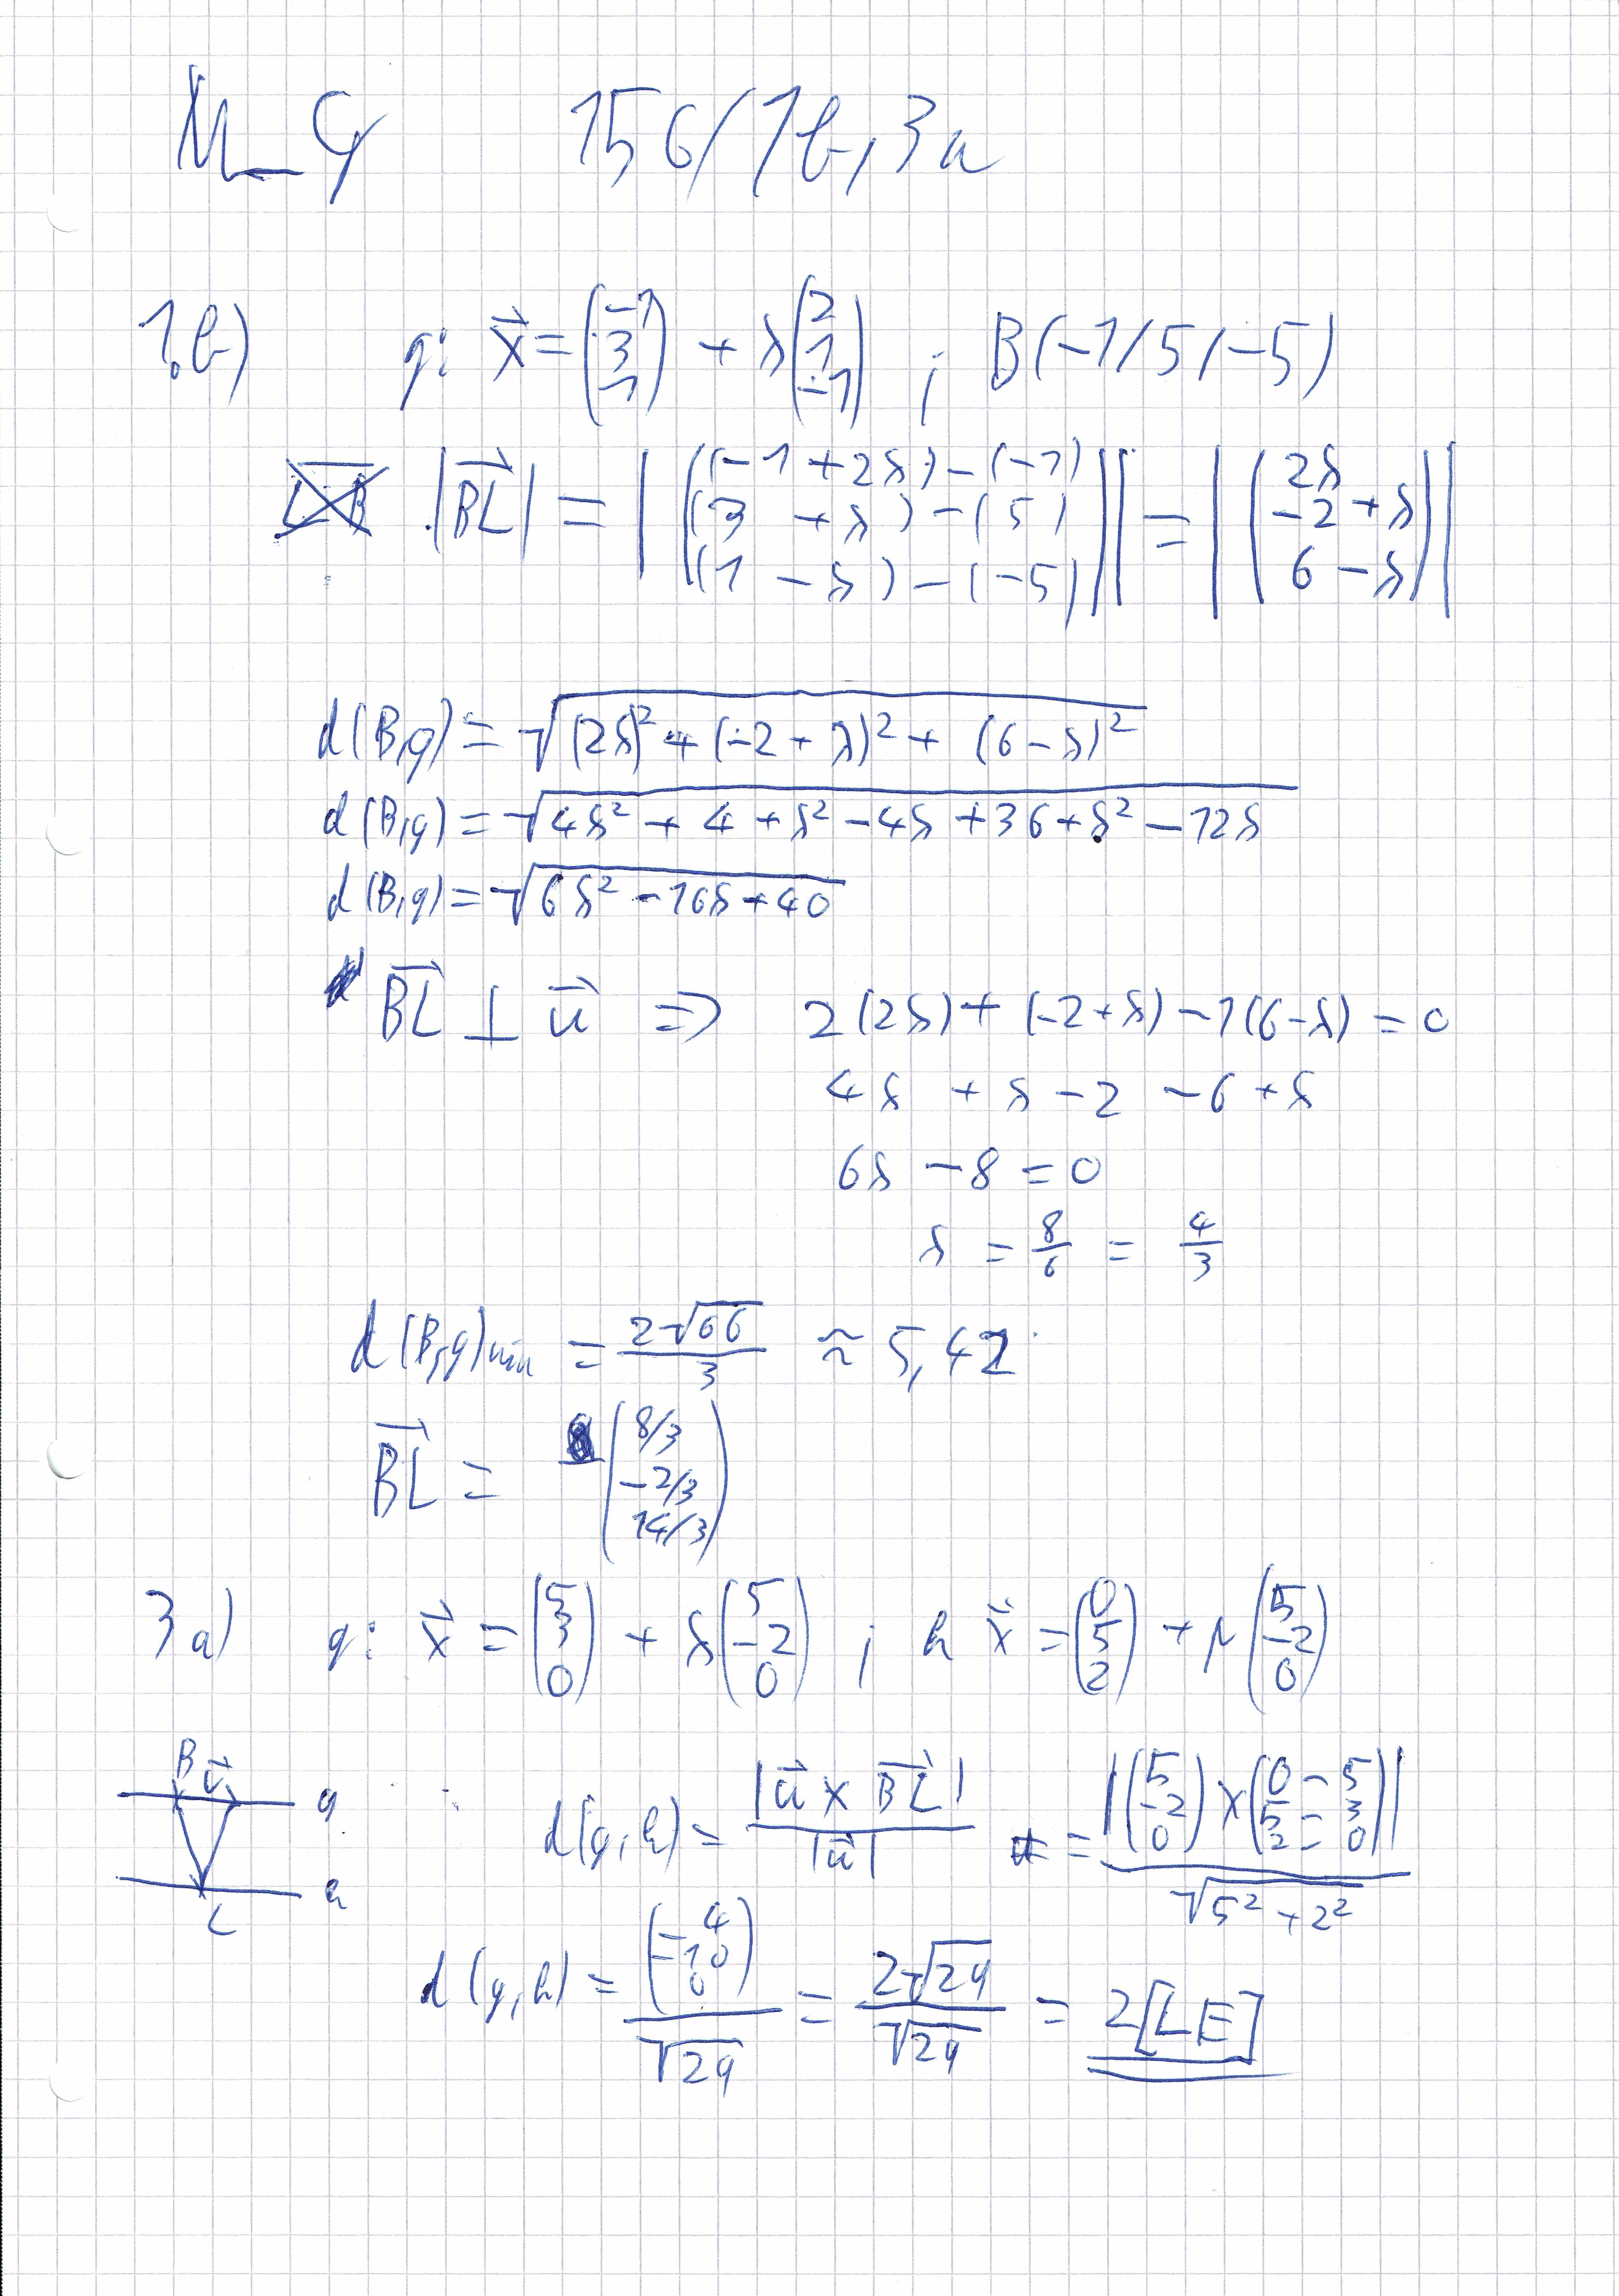 M_G 156/1b, 3a
1.b) g: x⃗ = (-1 3 1) + λ(2 1 -1) ; B(-1/5/-5)
|BL⃗| = |((-1+2λ)-(-1) (3+λ)-(5) (1-λ)-(-5))| = |(2λ -2+λ 6-λ)|
d(B,g) = √((2λ)² + (-2+λ)² + (6-λ)²)
d(B,g) = √(4λ² + 4 + λ² - 4λ + 36 + λ² - 12λ)
d(B,g) = √(6λ² - 16λ + 40)
BL⃗ ⊥ u⃗ ⇒ 2(2λ) + (-2+λ) - 1(6-λ) = 0
4λ + λ - 2 - 6 + λ
6λ - 8 = 0
λ = 8/6 = 4/3
d(B,g)min = 2√66/3 ≈ 5,42
BL⃗ = (8/3 -2/3 14/3)
3a) g: x⃗ = (5 3 0) + λ(5 -2 0) ; h x⃗ = (0 5 2) + μ(5 -2 0)
B u⃗ g
h
L
d(g,h) = |u⃗ × BL⃗| / |u⃗| = |(5 -2 0) × (0-5 5-3 2-0)| / √(5²+2²)
d(g,h) = (-4 -10 0) / √29 = 2√29 / √29 = 2[LE]